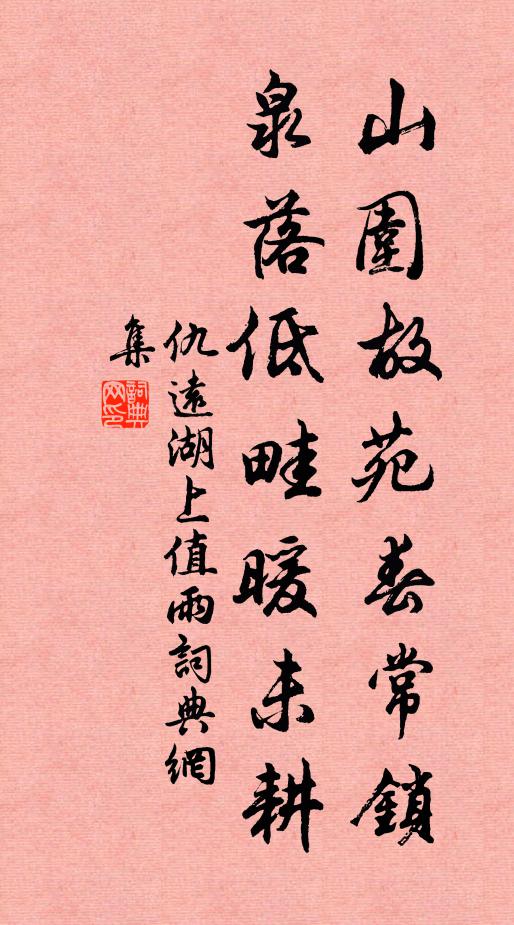 山圍故苑春常鎖
泉落低畦暖未耕
仇遠湖上值雨詞典網
集
詞典網印